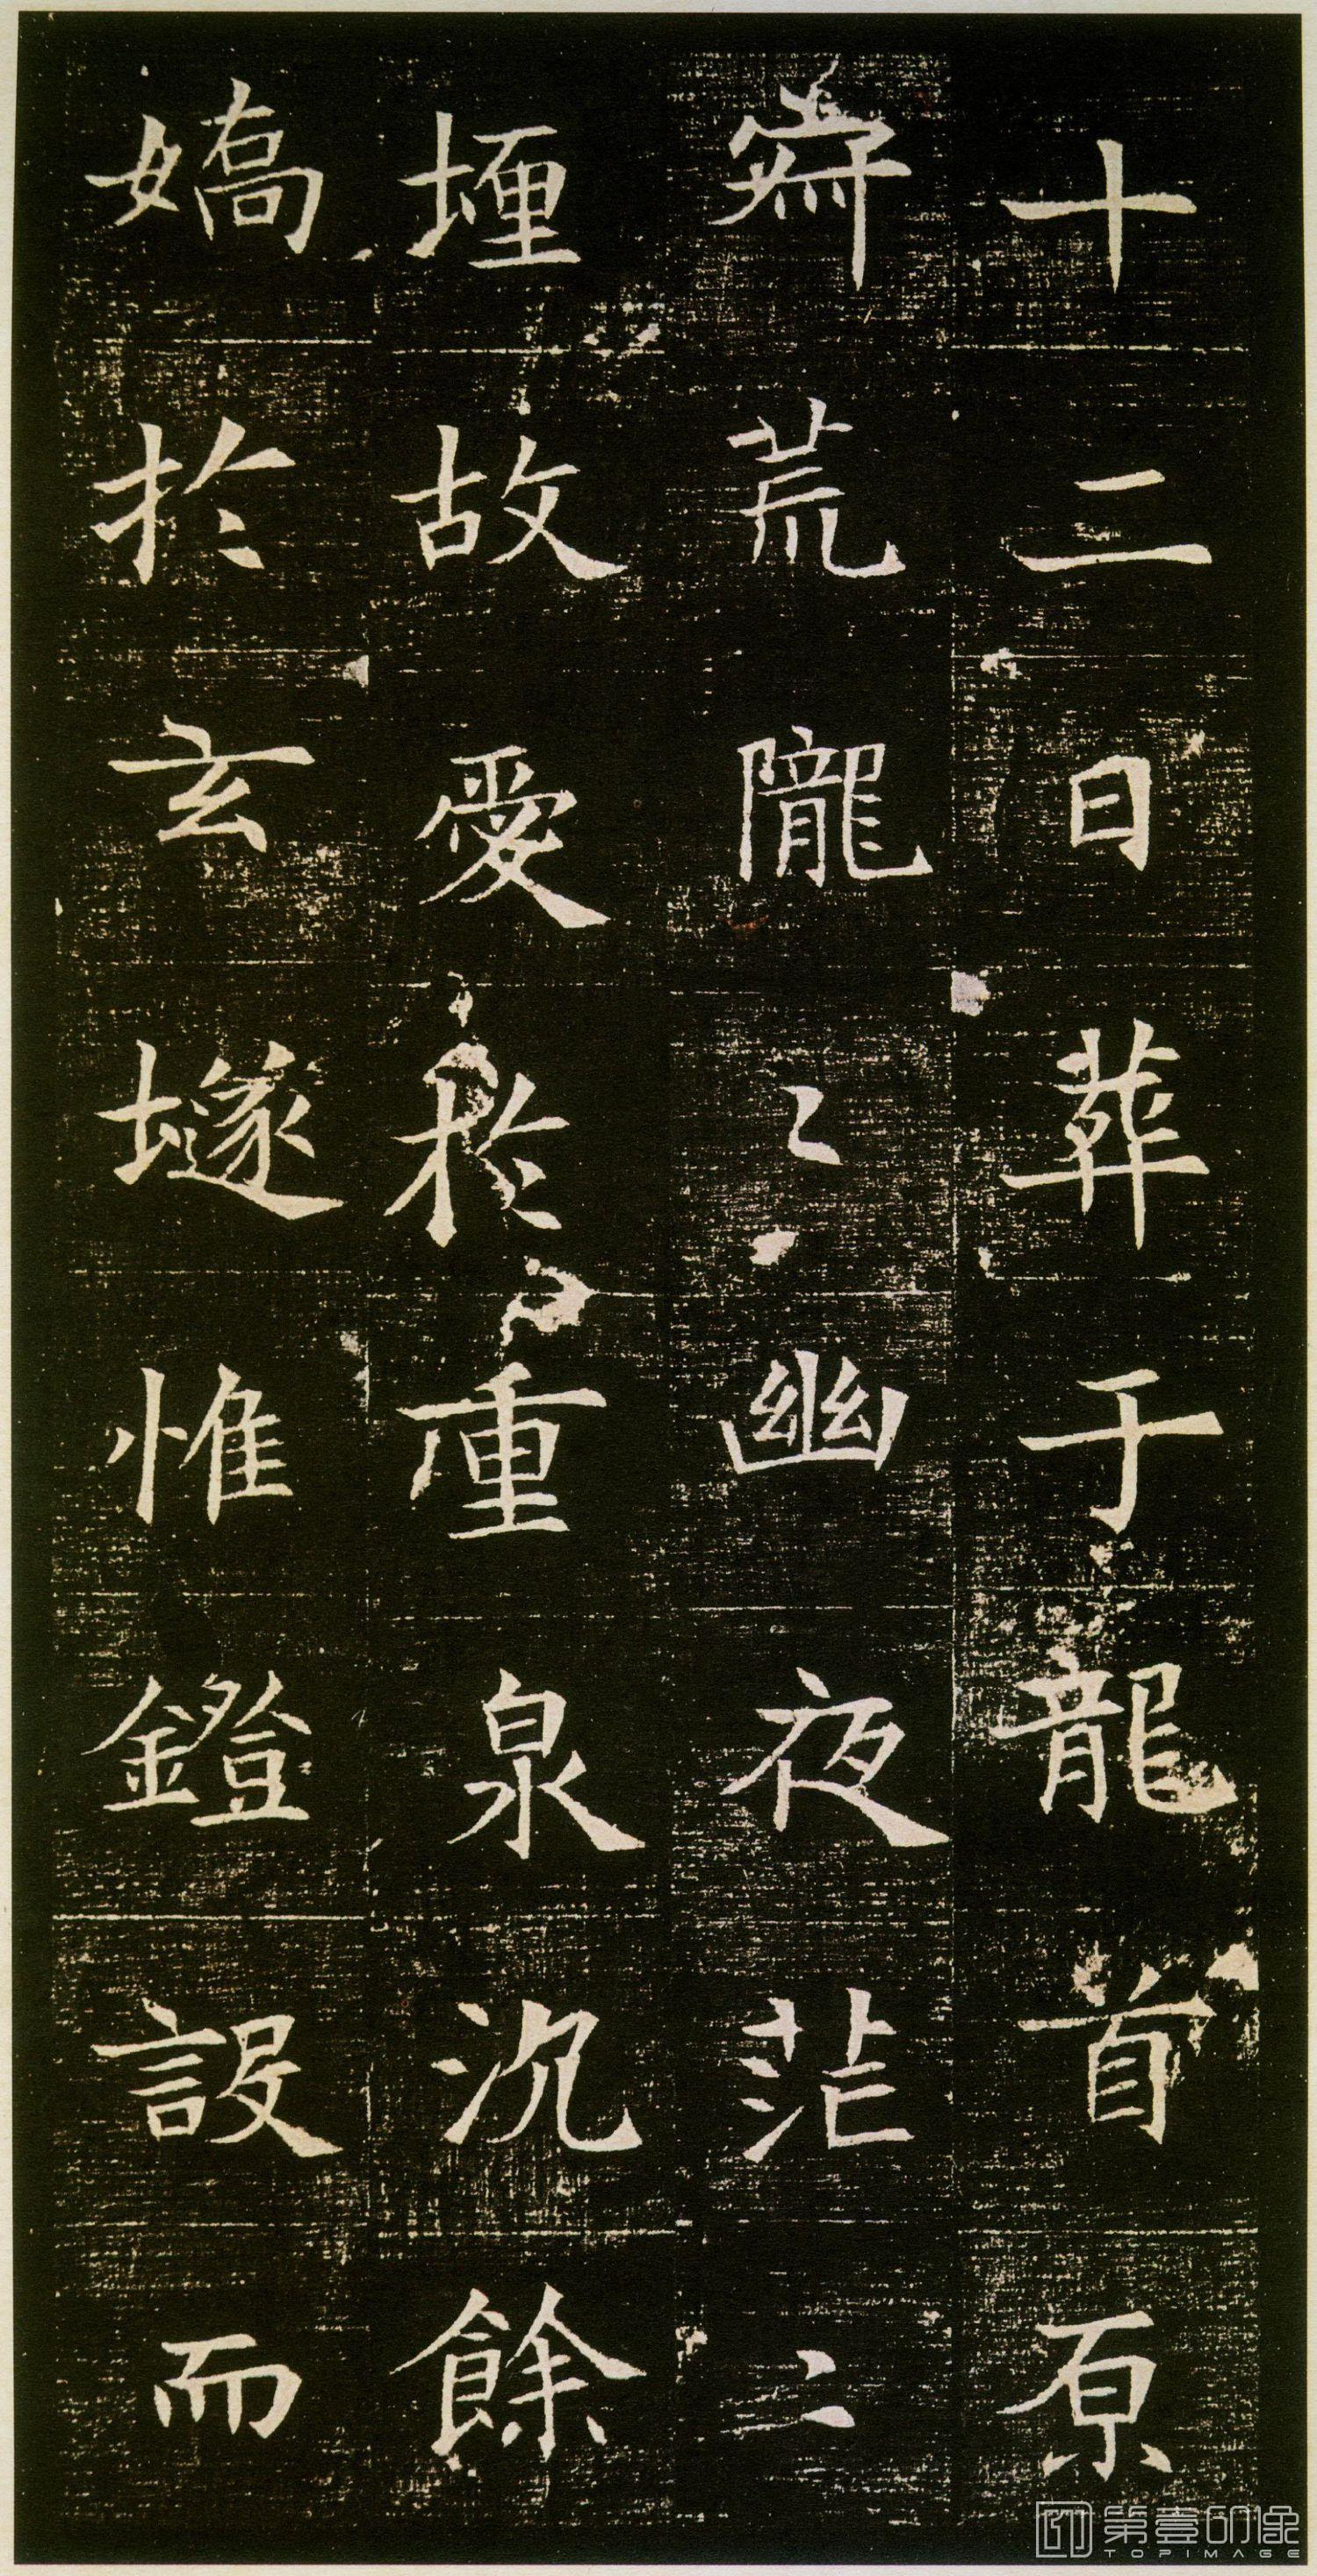 十二日葬于龍首原
寂荒隴〻幽夜茫〻
堙故愛於重泉沉餘
嬌於玄墜惟鐙設而
第壹印像
TOPIMAGE